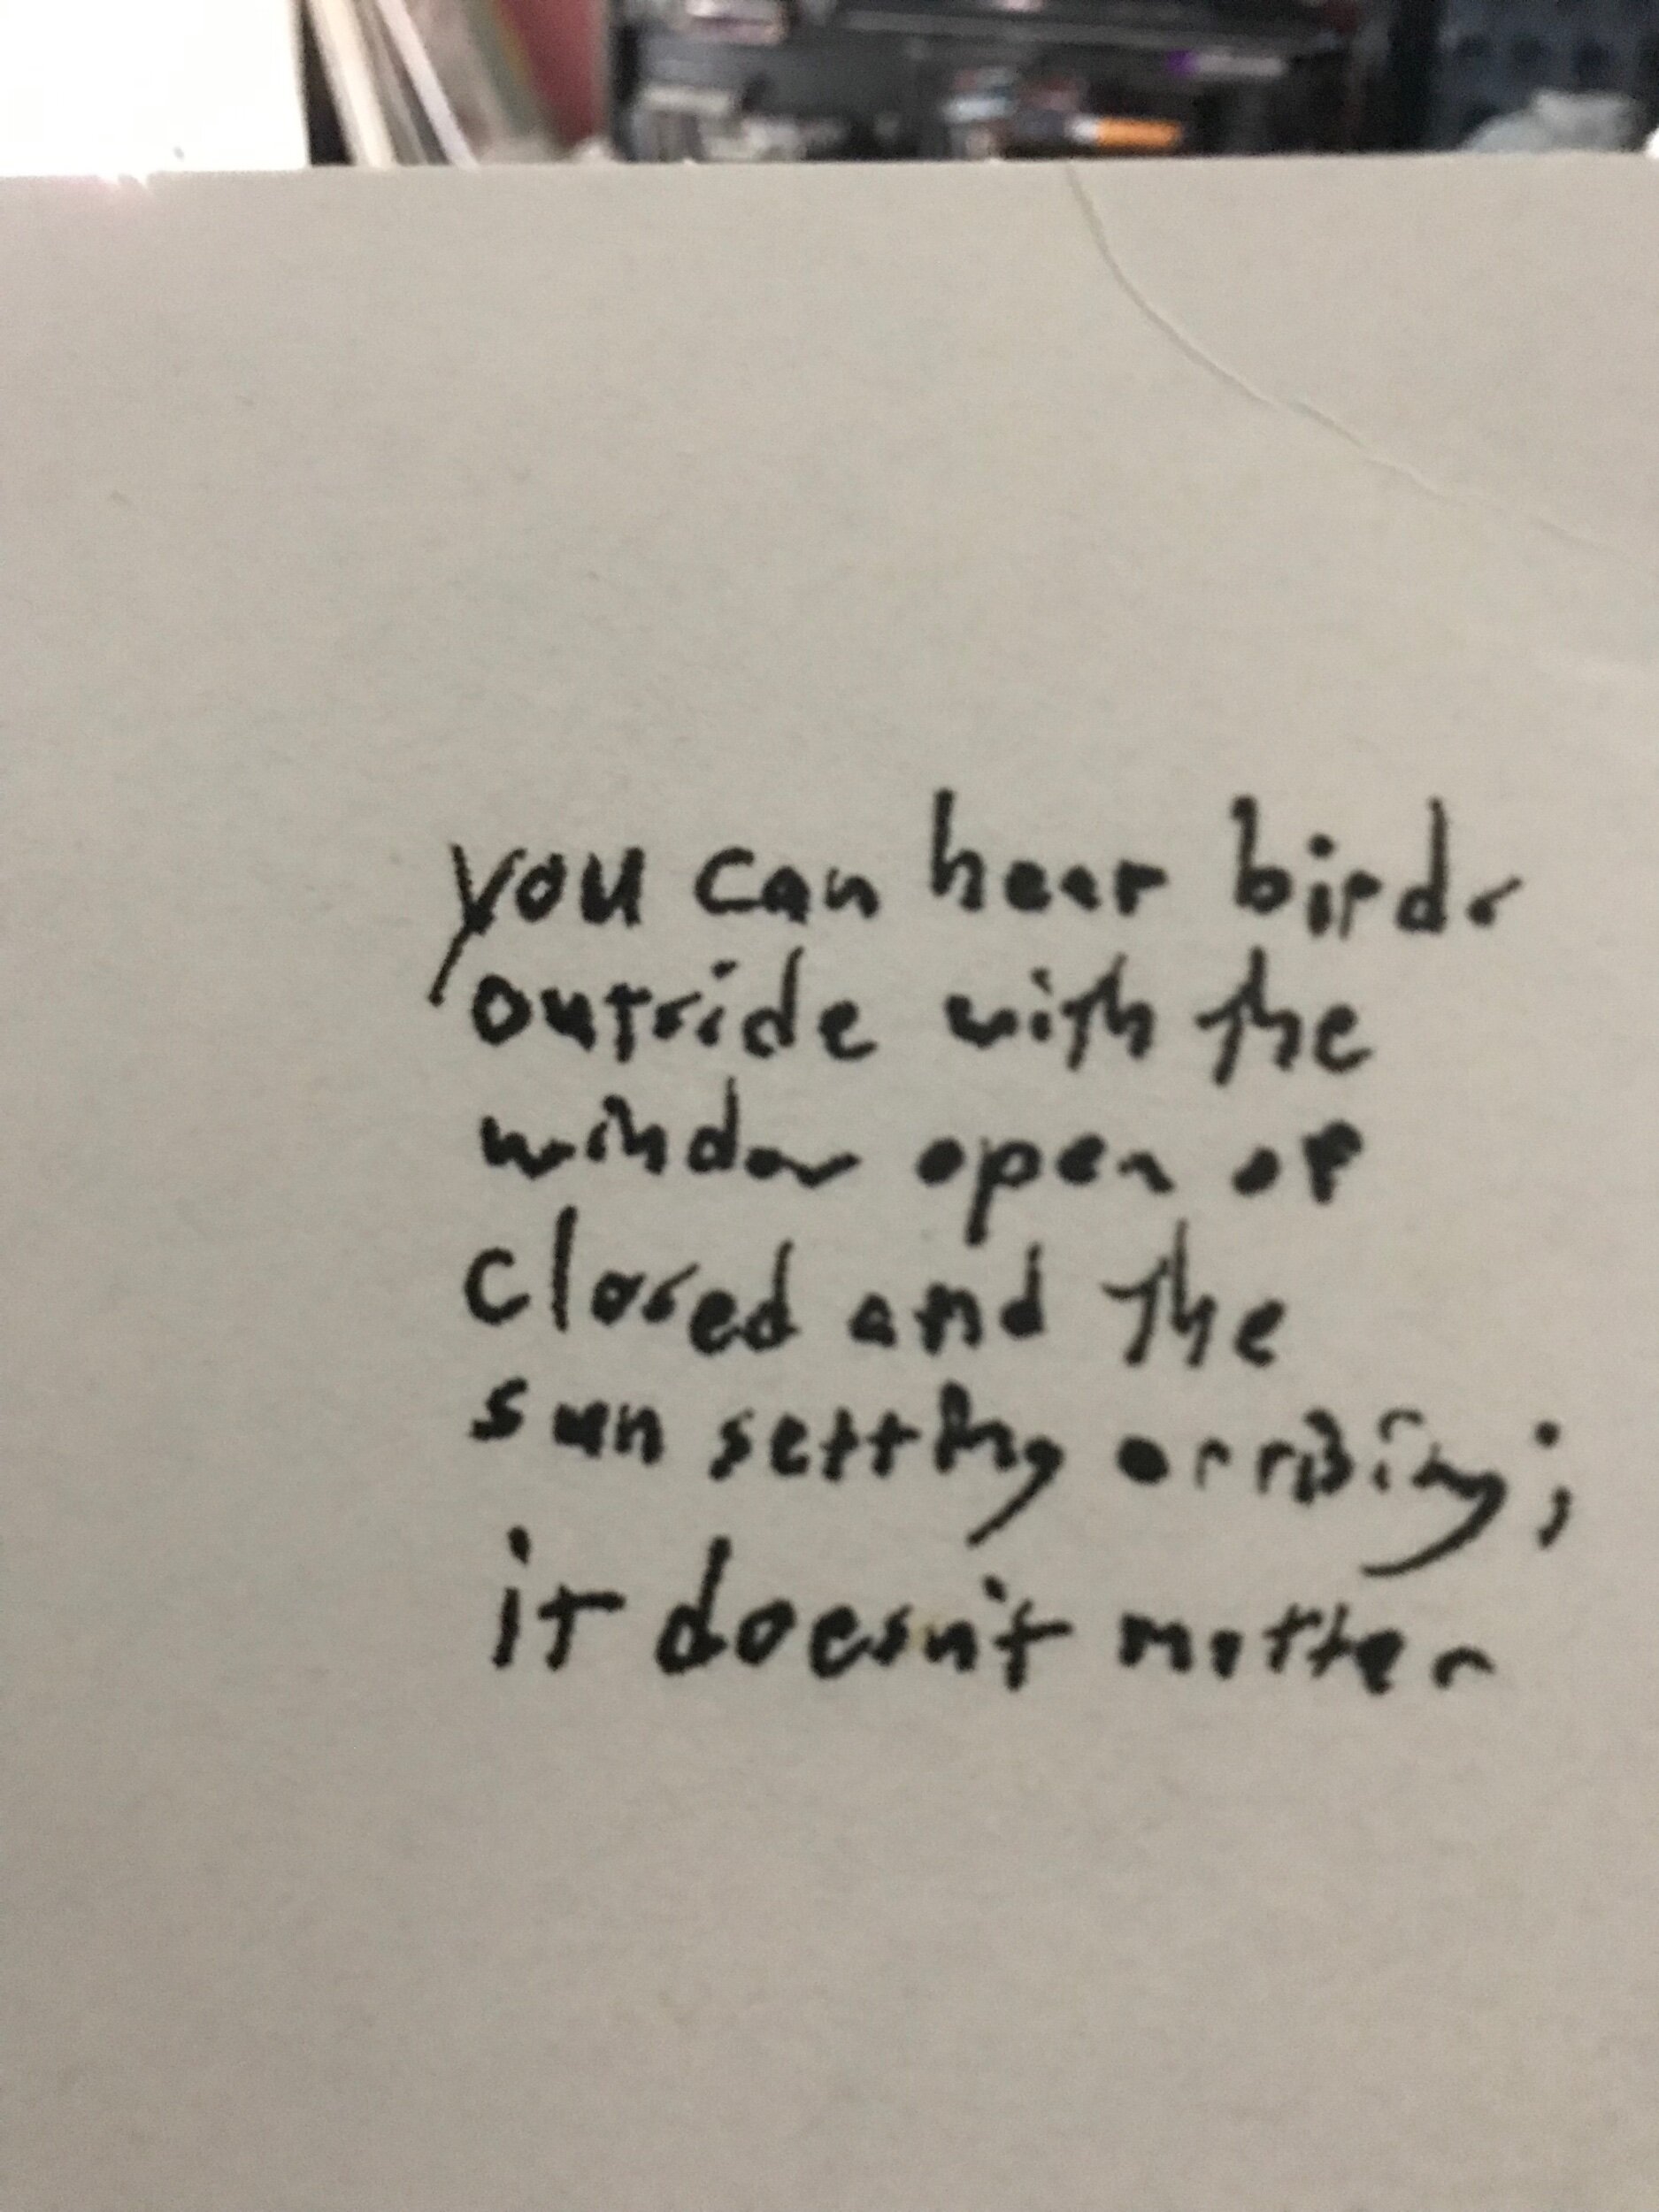 you can hear birds
outside with the
window open or
closed and the
sun setting or rising;
it doesn't matter